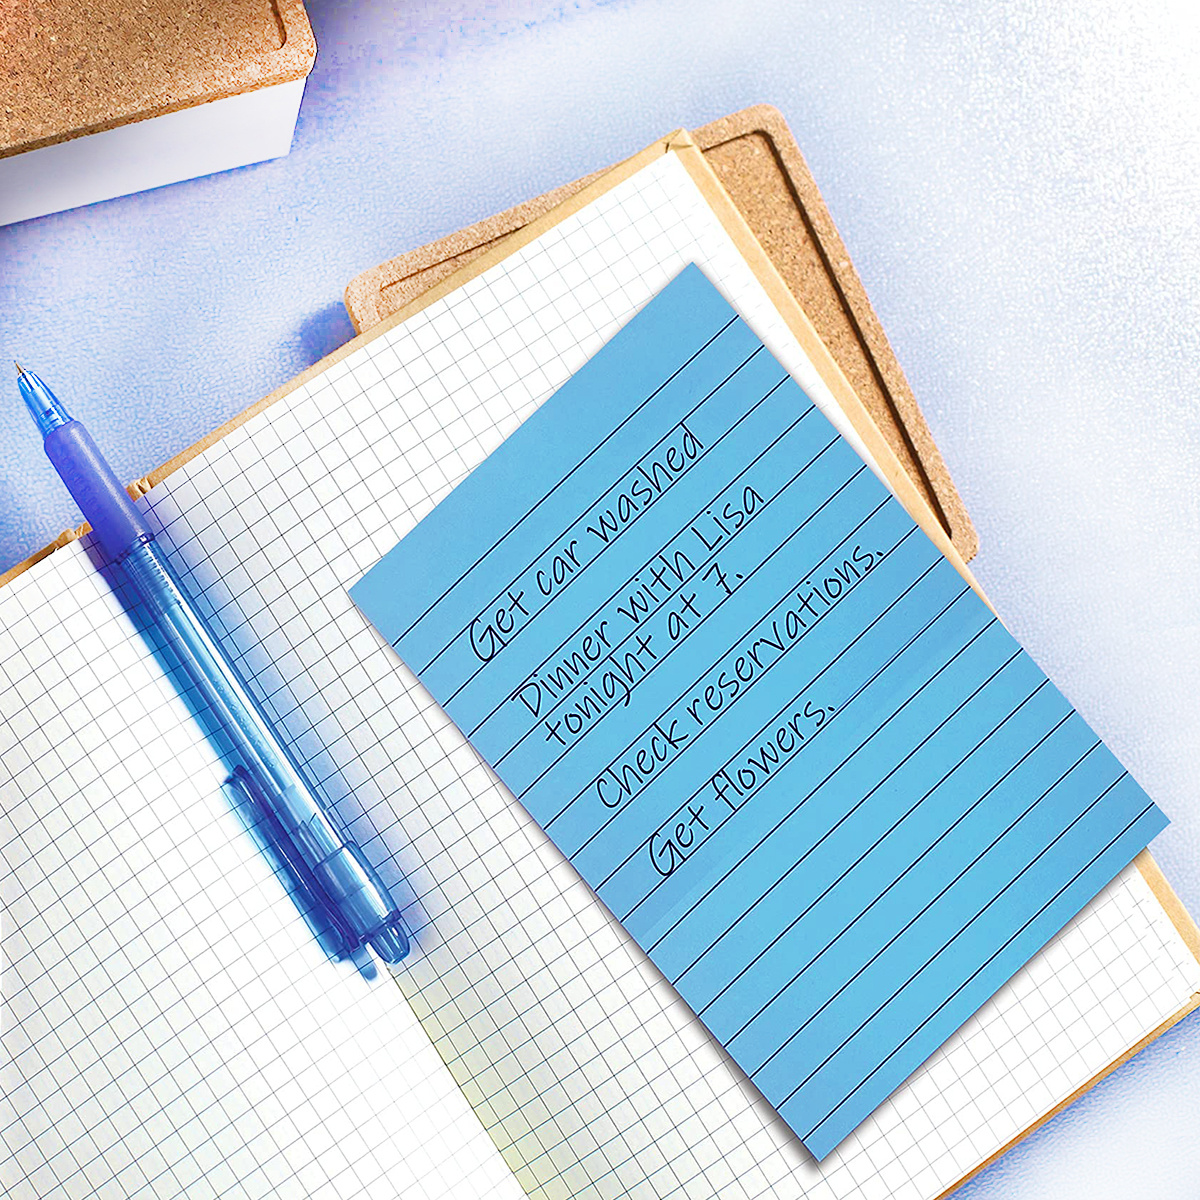 Get car washed
Dinner with Lisa
tonight at 7.
Check reservations.
Get flowers.